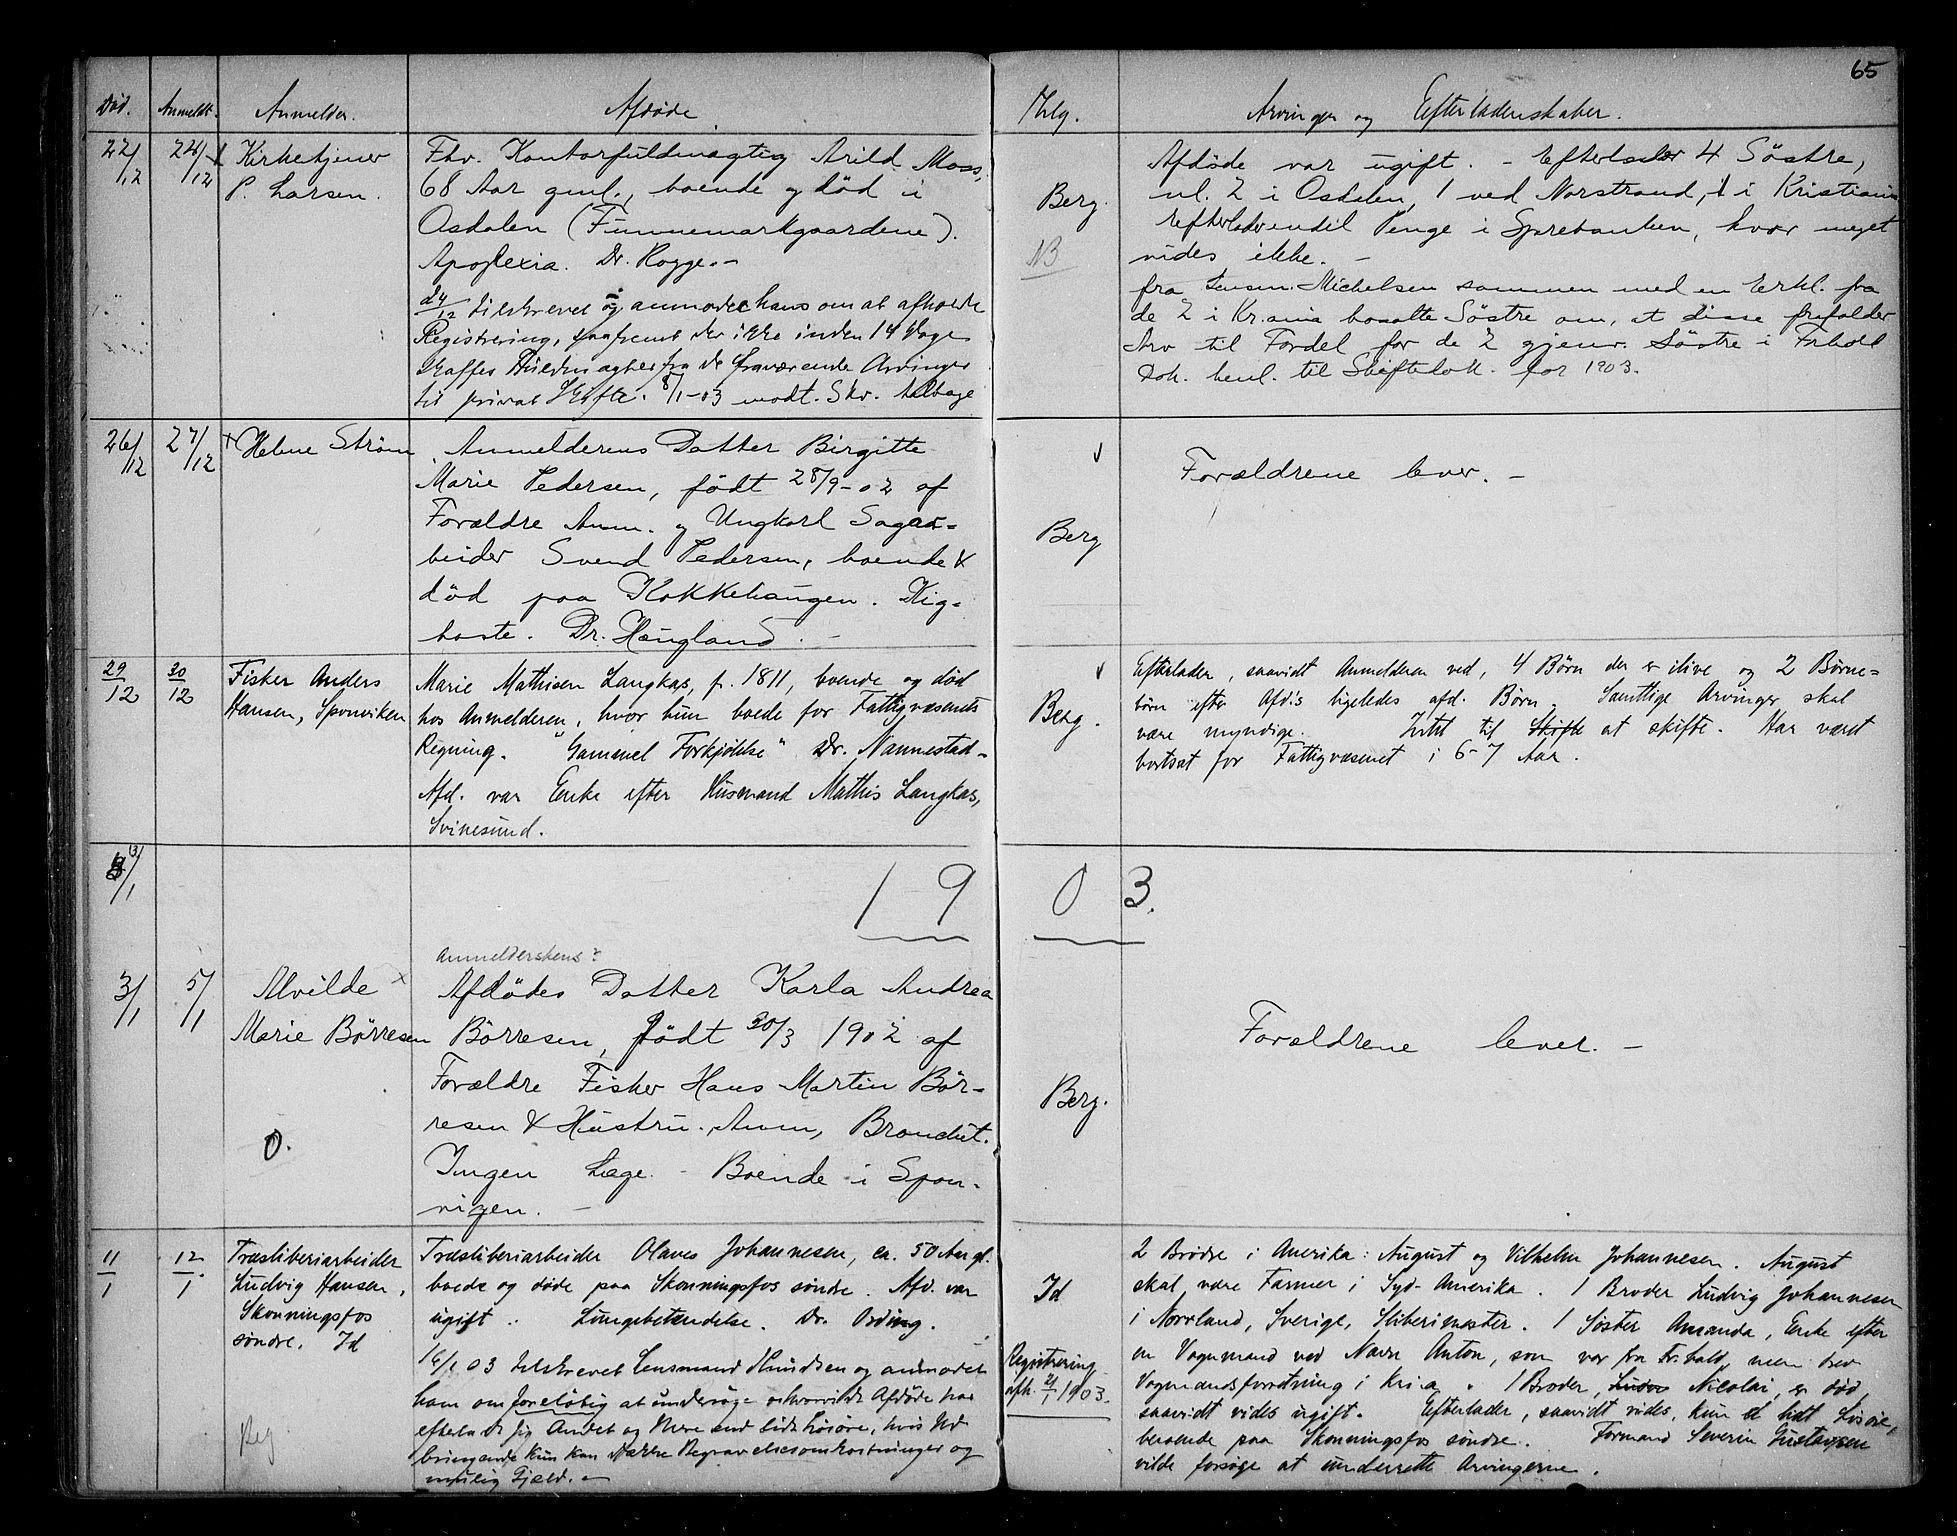 65
Död. Anmeldt. Anmelder. Afdøde. Thlg. Arvinger og Efterladenskaber.
22/12 24/12 Kirketjener
P. Larsen.
Fhv. Kontorfuldmægtig Arild Moss,
68 Aar gml., boende & død i
Osdalen (Funnemarkgaardene).
Apoplexia. Dr. Rogge. -
24/12 tilskrevet og anmodet ham om at afholde
Registrering, saafremt der ikke inden 14 Dage
skaffes fra de fraværende Arvinger
til privat Skifte. 8/1-03 modt. Skr. tilbage
Berg.
NB
Afdøde var ugift. - Efterlader 4 Søstre,
nl. 2 i Osdalen, 1 ved Norstrand, 1 i Kristiania
Efterlader endel Penge i Sparebanken, hvor meget
vides ikke. -
fra Lensm. Michelsen sammen med en Erkl. fra
de 2 i Kr.ania bosatte Søstre om, at disse frafalder
Arv til Fordel for de 2 gjenv. Søstre i Frhald
Dok. henl. til Skiftedok. for 1903.
26/12 27/12 Helene Strøm
Anmelderens Datter Birgitte
Marie Pedersen, født 28/9-02 af
Forældre Anm. & Ungkarl Sagar-
beider Svend Pedersen, boende &
død paa Kokkehaugen. Kig-
hoste. Dr. Haugland. -
Berg
Forældrene lever. -
29/12 30/12 Fisker Anders
Hansen, Sponviken
Marie Mathisen Langkas, f. 1811, boende og død
hos Anmelderen, hvor hun boede for Fattigvæsenets
Regning. "Gammel Forkjølelse" Dr. Nannestad -
Afd. var Enke efter Husmand Mathis Langkas,
Svinesund.
Berg.
Efterlader, saavidt Anmelderen ved, 4 Børn der er ilive og 2 Børne-
børn efter Afd.s ligeledes afd. Børn. Samtlige Arvinger skal
være myndige. Intet til Skifte at skifte. Har været
bortsat for Fattigvæsenet i 6-7 Aar.
3/1
1903.
3/1 5/1 Alvilde
Marie Børresen
O.
Anmelderskens?
Afdødes Datter Karla Andrea
Børresen, født 30/3 1902 af
Forældre Fisker Hans Martin Bör-
resen & Hustru. Anm, Bronchit.
Ingen Læge. - Boende i Spon-
vigen. -
Berg.
Forældrene lever. -
11/1 12/1 Træsliberiarbeider
Ludvig Hansen,
Skonningsfos
søndre. Id
Reg
Træsliberiarbeider Olaves Johannesen, ca. 50 Aar gl.
boede og døde paa Skonningsfos søndre. Afd. var
ugift. Lungebetændelse. Dr. Ording.
16/1 03 tilskrevet Lensmand Knudsen og anmodet
ham om foreløbig at undersøge hvorvidt Afdøde har
efterladt sig Andet og Mere end lidt Løsøre, hvis Ud
bringende kun kan dække Begravelsesomkostninger og
mulig Gjæld. -
Id
Registrering
afh. 21/1 1903.
2 Brødre i Amerika: August og Vilhelm Johannesen. August
skal være Farmer i Syd-Amerika. 1 Broder Ludvig Johannesen
i Norrland, Sverige, Slibermester. 1 Søster Amanda, Enke efter
en Vognmand ved Navn Anton, som var fra Fr.hald, men drev
Vognmandsforretning i Kria. 1 Broder, Nicolai, er død,
saavidt vides ugift. Efterlader, saavidt vides, kun lidt Løsøre,
beroende paa Skonningsfos søndre. Formand Severin Gustavsen
vilde forsøge at underrette Arvingerne.